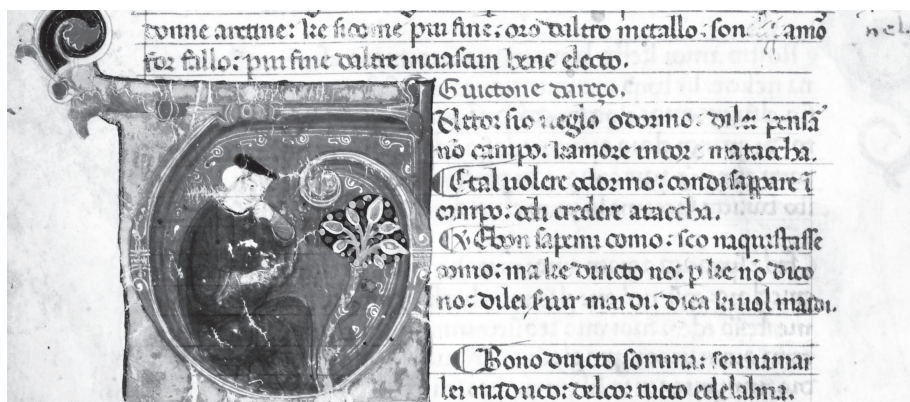 donne aretine: ke sicome piu fine: oro daltro metallo: son amo
for fallo: piu fine daltre inciascun bene electo.
Guictone dareço.
Vetor sio uegio odormo: dilei pensã
nõ campo. kamore incor matacca.
Etal uolere odormo: condi sappare ĩ
campo: odi credere ataccha.
Et bon sapemi como: seo naquistasse
omo: ma ke diricto no: p ke nõ dico
no: dilei
Bono diricto somma: sennamar
lei maduco: delcor tucto edelalma.